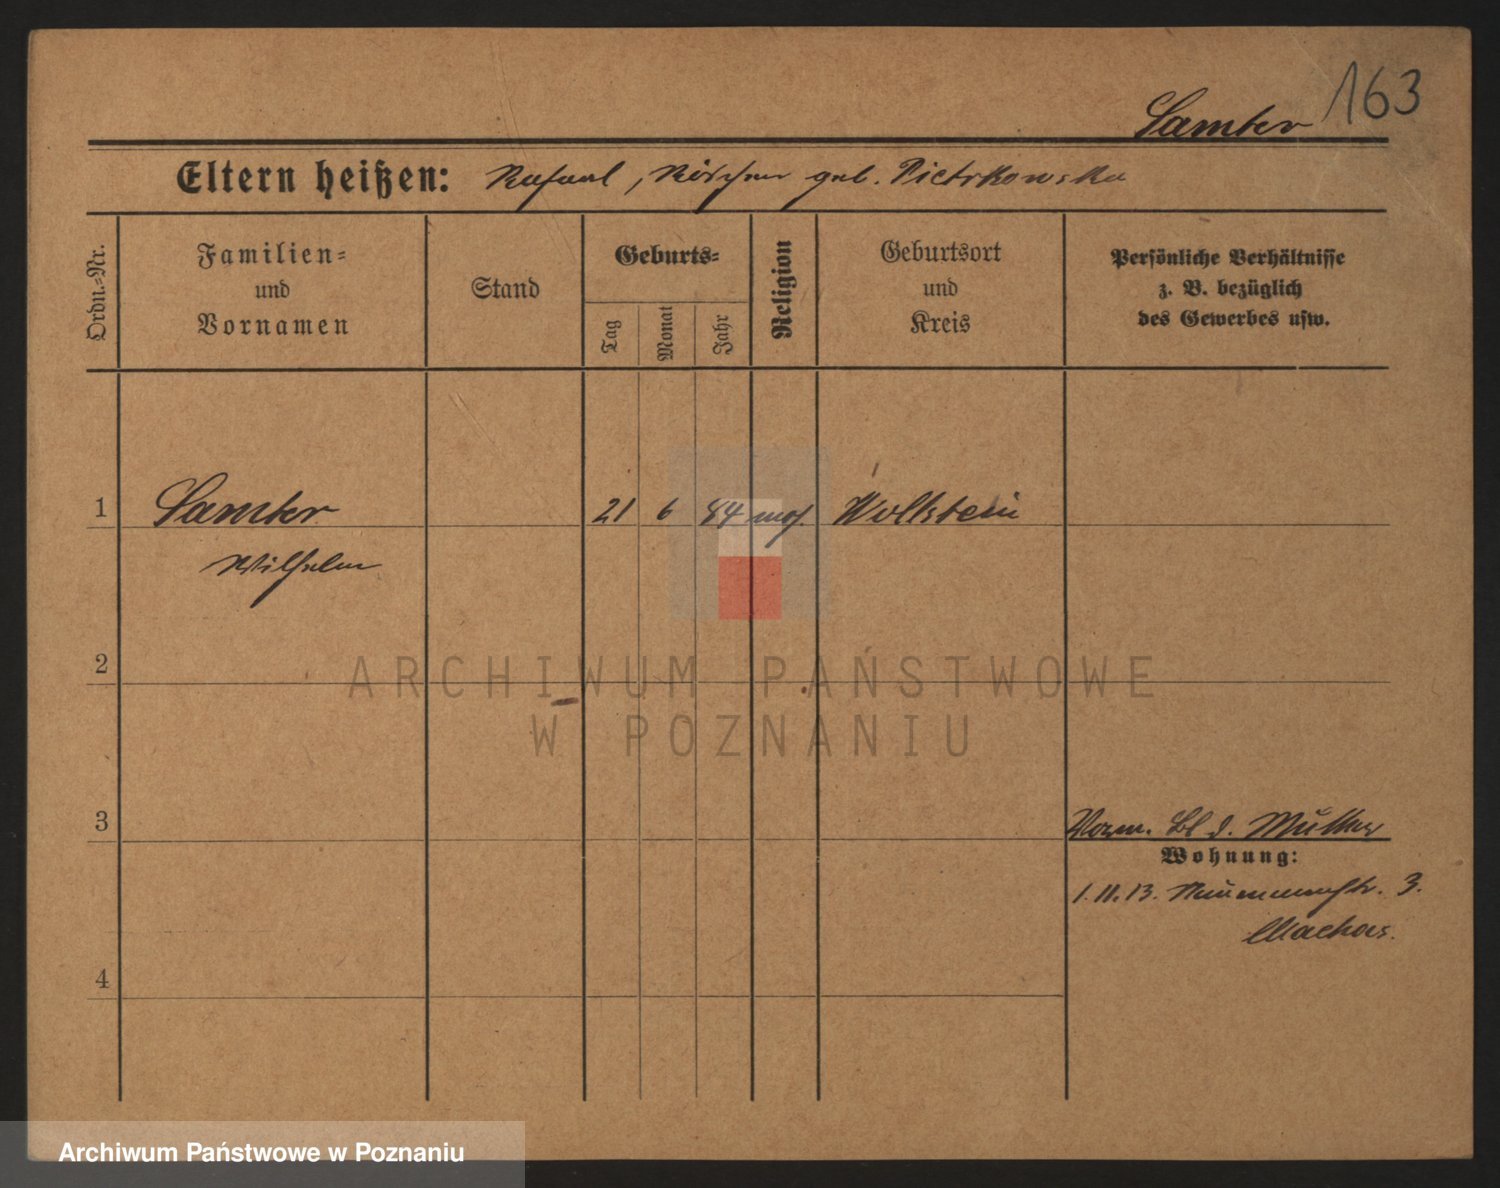 163
Samter
Eltern heißen: Rafael, geb. Pietrkowska
Ordn.-Nr.
Familien-
und
Vornamen
Stand
Geburts-
Tag
Monat
Jahr
Religion
Geburtsort
und
Kreis
Persönliche Verhältnisse
z. B. bezüglich
des Gewerbes usw.
1 Samter 21 6 84 mos. Wollstein
Wilhelm
2
ARCHIWUM PAŃSTWOWE
W POZNANIU
3
Vorm. Bl d. Mutter
Wohnung:
1.11.13. 3.
4
Archiwum Państwowe w Poznaniu